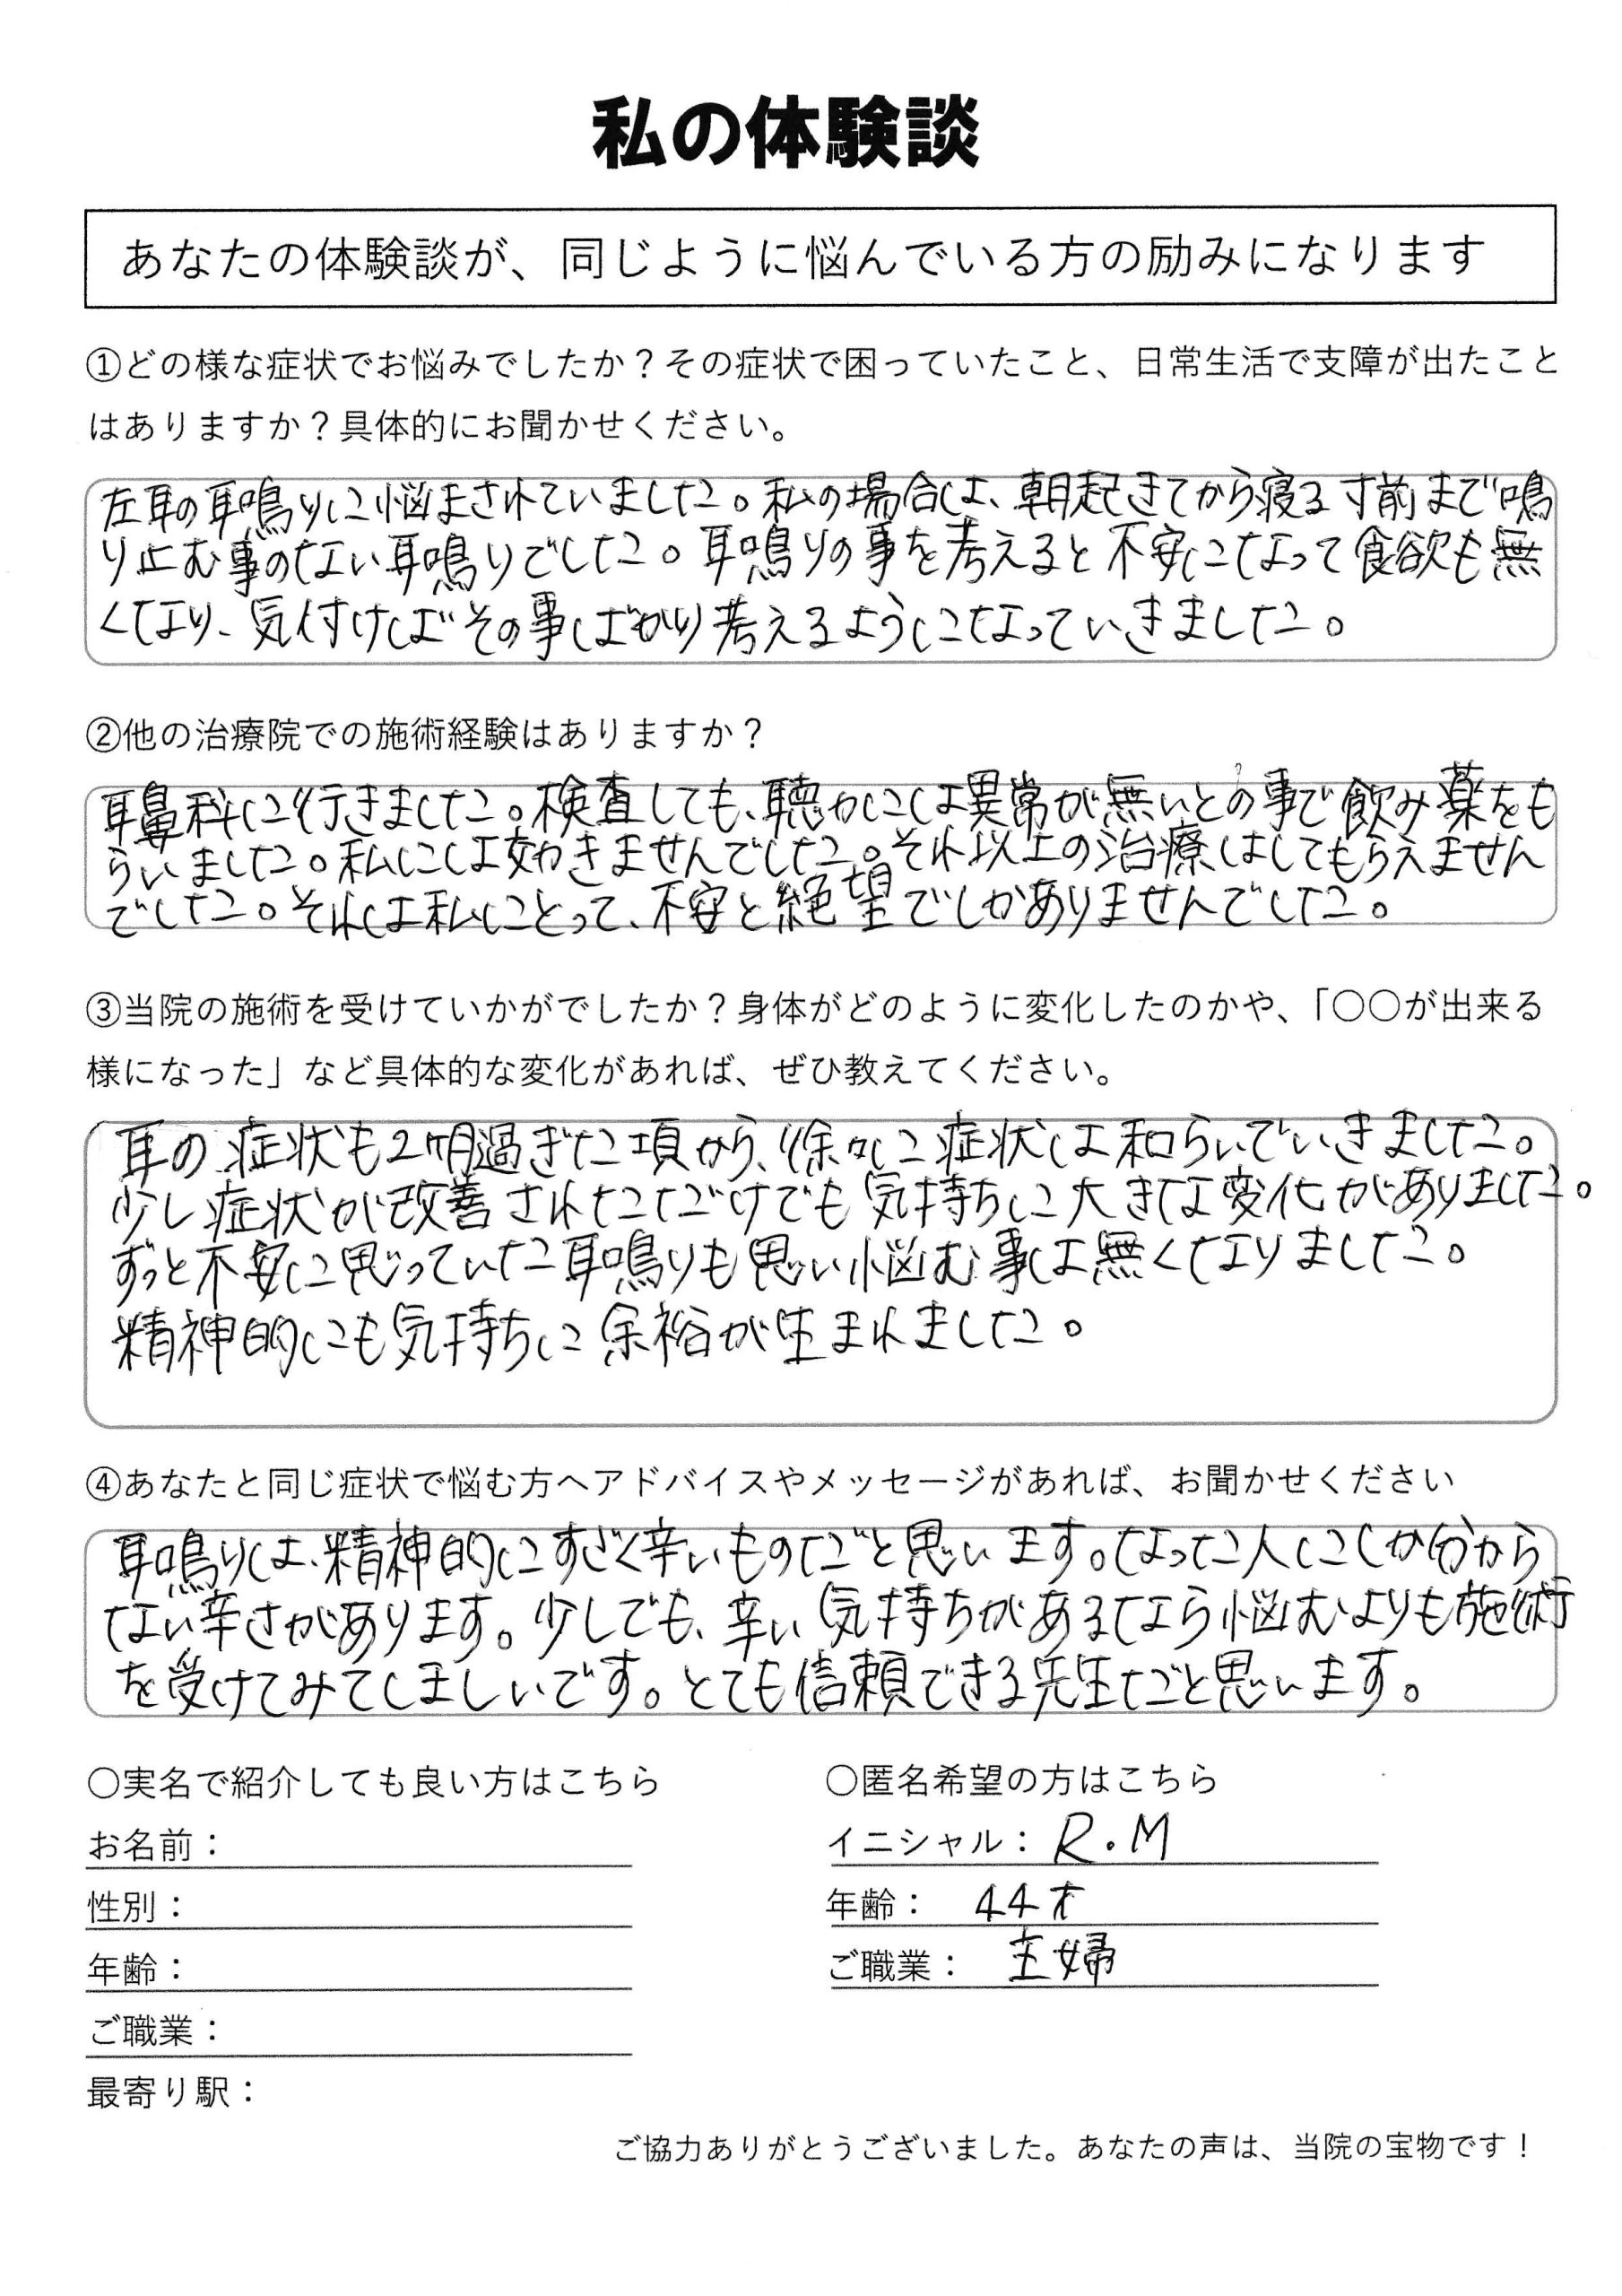 私の体験談
あなたの体験談が、同じように悩んでいる方の励みになります
①どの様な症状でお悩みでしたか？その症状で困っていたこと、日常生活で支障が出たこと
はありますか？具体的にお聞かせください。
左耳の耳鳴りに悩まされていました。私の場合は、朝起きてから寝る寸前まで鳴
り止む事のない耳鳴りでした。耳鳴りの事を考えると不安になって食欲も無
くなり、気付けばその事ばかり考えるようになっていきました。
②他の治療院での施術経験はありますか？
耳鼻科に行きました。検査しても、聴力には異常が無いとの事で飲み薬をも
らいました。私には効きませんでした。それ以上の治療はしてもらえません
でした。それは私にとって、不安と絶望でしかありませんでした。
③当院の施術を受けていかがでしたか？身体がどのように変化したのかや、「〇〇が出来る
様になった」など具体的な変化があれば、ぜひ教えてください。
耳の症状も2ヶ月過ぎた頃から、徐々に症状は和らいでいきました。
少し症状が改善されただけでも気持ちに大きな変化がありました。
ずっと不安に思っていた耳鳴りも思い悩む事は無くなりました。
精神的にも気持ちに余裕が生まれました。
④あなたと同じ症状で悩む方へアドバイスやメッセージがあれば、お聞かせください
耳鳴りは、精神的にすごく辛いものだと思います。なった人にしか分から
ない辛さがあります。少しでも、辛い気持ちがあるなら悩むよりも施術
を受けてみてほしいです。とても信頼できる先生だと思います。
〇実名で紹介しても良い方はこちら
お名前：
性別：
年齢：
ご職業：
最寄り駅：
〇匿名希望の方はこちら
イニシャル：R.M
年齢：44才
ご職業：主婦
ご協力ありがとうございました。あなたの声は、当院の宝物です！